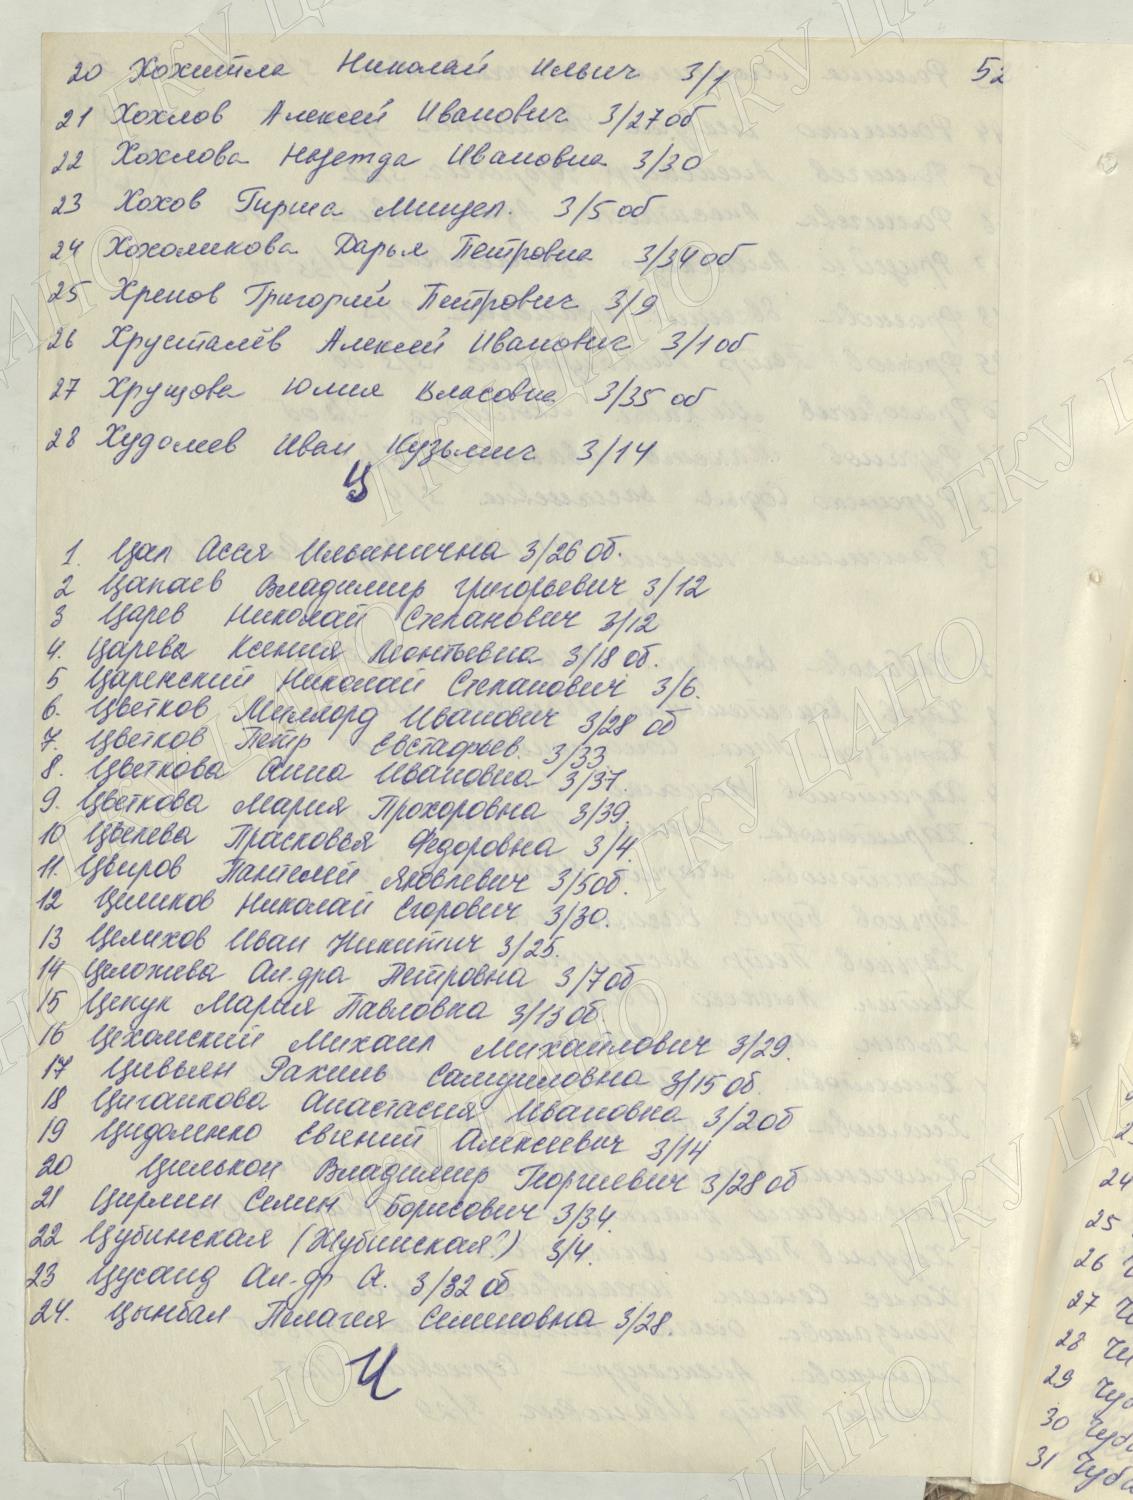 52
20 Хохитла Николай Ильич 3/1
21 Хохлов Алексей Иванович 3/27 об
22 Хохлова Надежда Ивановна 3/30
23 Хохов Гирша Мицел. 3/5 об
24 Хохоликова Дарья Петровна 3/34 об
25 Хренов Григорий Петрович 3/9
26 Хрусталёв Алексей Иванович 3/1 об
27 Хрущова Юлия Власовна 3/35 об
28 Худолеев Иван Кузьмич 3/14
Ц
1. Цап Асся Ильинична 3/26 об.
2 Цапаев Владимир Григорьевич 3/12
3 Царев Николай Степанович 3/12
4. Царева Ксения Леонтьевна 3/18 об.
5 Царенский Николай Степанович 3/6.
6. Цветков Миллорд Иванович 3/28 об
7. Цветков Петр Евстафьев. 3/33
8. Цветкова Анна Ивановна 3/37.
9. Цветкова Мария Прохоровна 3/39.
10 Цвелева Прасковья Федоровна 3/4.
11. Цвиров Пантелей Яковлевич 3/5об.
12 Целиков Николай Егорович 3/30.
13 Целихов Иван Никитич 3/25.
14 Целожева Ал-дра Петровна 3/7 об
15 Ценук Мария Павловна 3/13 об.
16 Цехомский Михаил Михайлович 3/29.
17 Цивьян Рахиль Самуиловна 3/15 об.
18 Циганкова Анастасия Ивановна 3/2 об
19 Цидоленко Евгений Алексеевич 3/14
20 Цилькон Владимир Георгиевич 3/28 об
21 Цирлин Семен Борисович 3/34.
22 Цубинская (Жубинская?) 3/4.
23 Цусанд Ал-др А. 3/32 об
24. Цынбал Пелагея Семеновна 3/28.
Ч
24
25
26
27
28
29
30
31
ГКУ ЦАНО